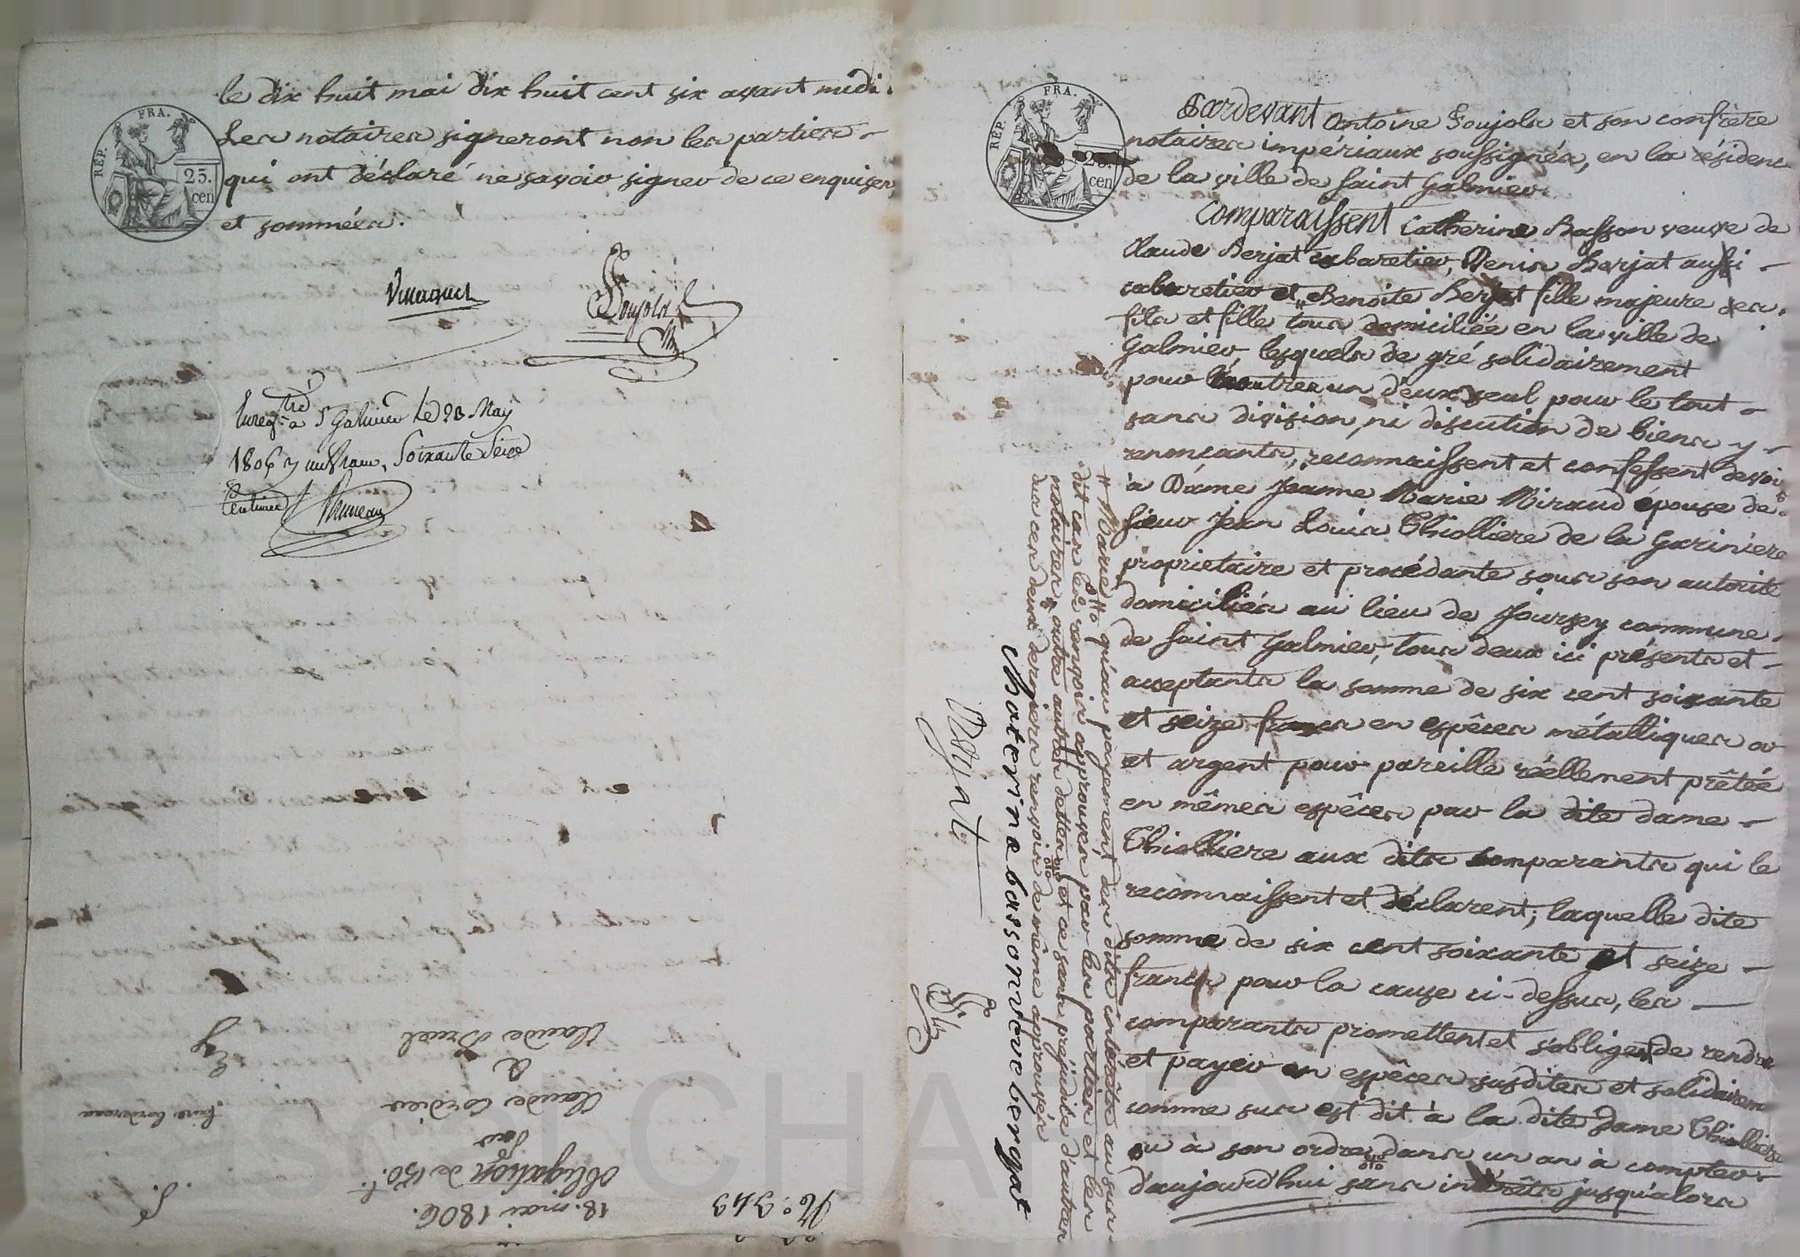 le dix huit mai dix huit cent six avant midi.
Les notaires signeront non les parties
qui ont déclaré ne savoir signer de ce enquises
et sommées.
REP. FRA.
25.
cen
Soujols
Enregtré à St Galmier le 28 May
1806 Soixante Seize
Centimes
Claude Bruel
A
Claude Cordier
Par
obligation de 150 f.
18. mai 1806.
No. 343
REP. FRA.
25.
cen
Pardevant Antoine Soujols et son confrère
notaires impériaux soussignés, en la résidence
de la ville de Saint Galmier.
Comparaissent Catherine Basson veuve de
Claude Berjat cabaretier, Denis Berjat aussi
cabaretier et Benoite Berjat fille majeure ses
fils et fille tous domiciliés en la ville de
Galmier, lesquels de gré solidairement
pour un d'eux seul pour le tout
sans division, ni discution de biens y
renonçants, reconnaissent et confessent devoir
à Dame Jeanne Marie Miraud epouse de
sieur Jean Louis Thiolliere de la Gariniere
proprietaire et procédante sous son autorité
domiciliés au lieu de Joursey commune
de Saint Galmier, tous deux ici présents et
acceptants la somme de six cent soixante
et seize francs en espêces métalliques or
et argent pour pareille réellement prêtée
en mêmes espêces par la dite dame
Thiolliere aux dits comparants qui le
reconnaissent et déclarent; laquelle dite
somme de six cent soixante et seize
francs pour la cause ci-dessus, les
comparants promettent et s'obligent de rendre
et payer en espêces susdites et solidairement
comme sus est dit à la dite Dame Thiolliere
ou à son ordre dans un an à compter
d'aujourd'hui sans intérêts jusqu'alors
# Marie # qu'au payement des dits intérêts au sur
dit cas le renvoi approuvé par les parties et les
notaires # outre autres dettes et ce sans préjudice d'autres
dus ces deux derniers renvois de même approuvés
Materine bassonveve bergat